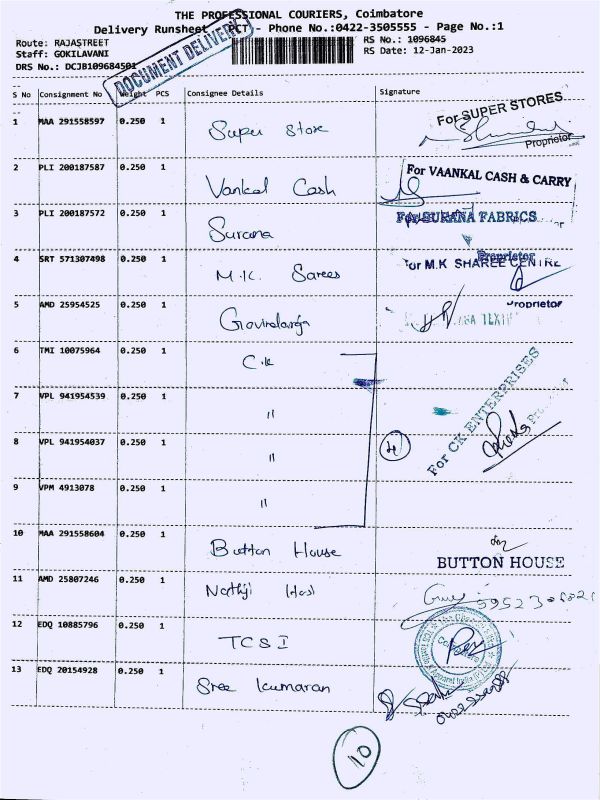 THE PROFESSIONAL COURIERS, Coimbatore
Delivery Runsheet - PCT - Phone No.:0422-3505555 - Page No.:1
Route: RAJASTREET
RS No.: 1096845
Staff: GOKILAVANI
RS Date: 12-Jan-2023
DRS No.: DCJB109684501
DOCUMENT DELIVERY
S No Consignment No Weight PCS Consignee Details Signature
1 MAA 291558597 0.250 1 Super Store
For SUPER STORES
Proprietor
2 PLI 200187587 0.250 1 Vankal Cash
For VAANKAL CASH & CARRY
3 PLI 200187572 0.250 1 Surana
For SURANA FABRICS
Proprietor
4 SRT 571307498 0.250 1 M.K. Sarees
For M.K SHAREE CENTRE
Proprietor
5 AMD 25954525 0.250 1
6 TMI 10075964 0.250 1 C.K
7 VPL 941954539 0.250 1 "
8 VPL 941954037 0.250 1 "
9 VPM 4913078 0.250 1 "
4
For CK ENTERPRISES
10 MAA 291558604 0.250 1 Button House
BUTTON HOUSE
11 AMD 25807246 0.250 1
12 EDQ 10885796 0.250 1 TCSI
13 EDQ 20154928 0.250 1 Sree Kumaran
10